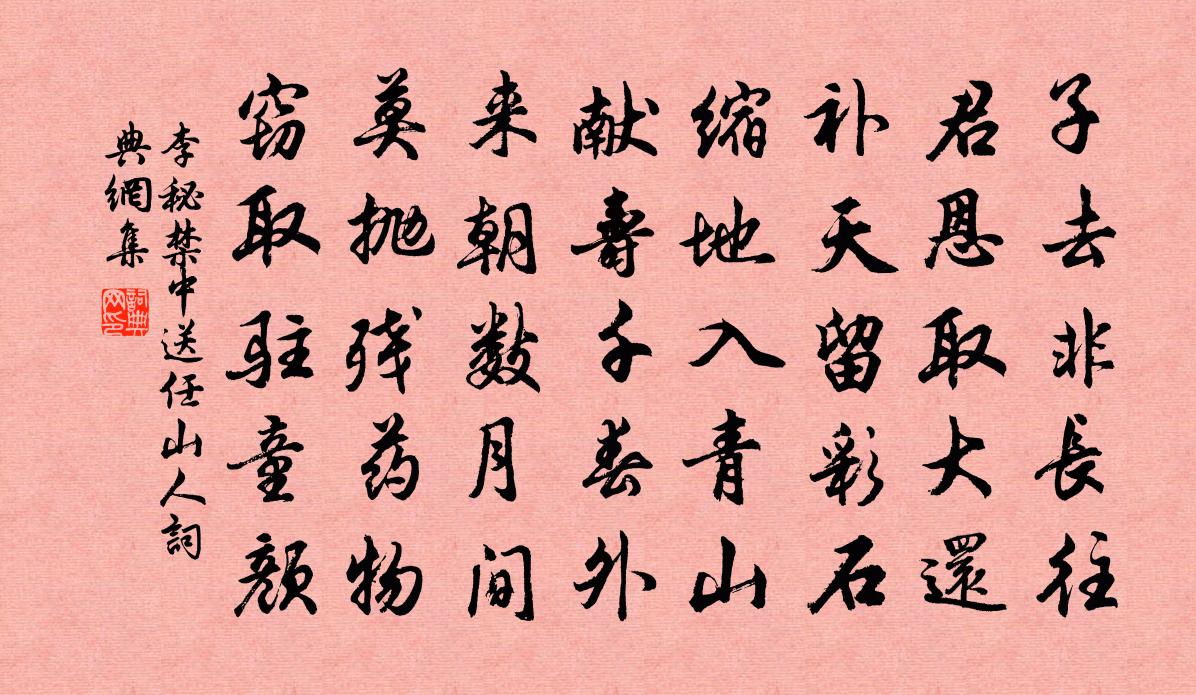 子去非長往
君恩取大還
补天留彩石
缩地入青山
献壽千春外
来朝数月间
莫抛残药物
窃取驻童颜
李秘禁中送任山人詞
典網集
詞典网印